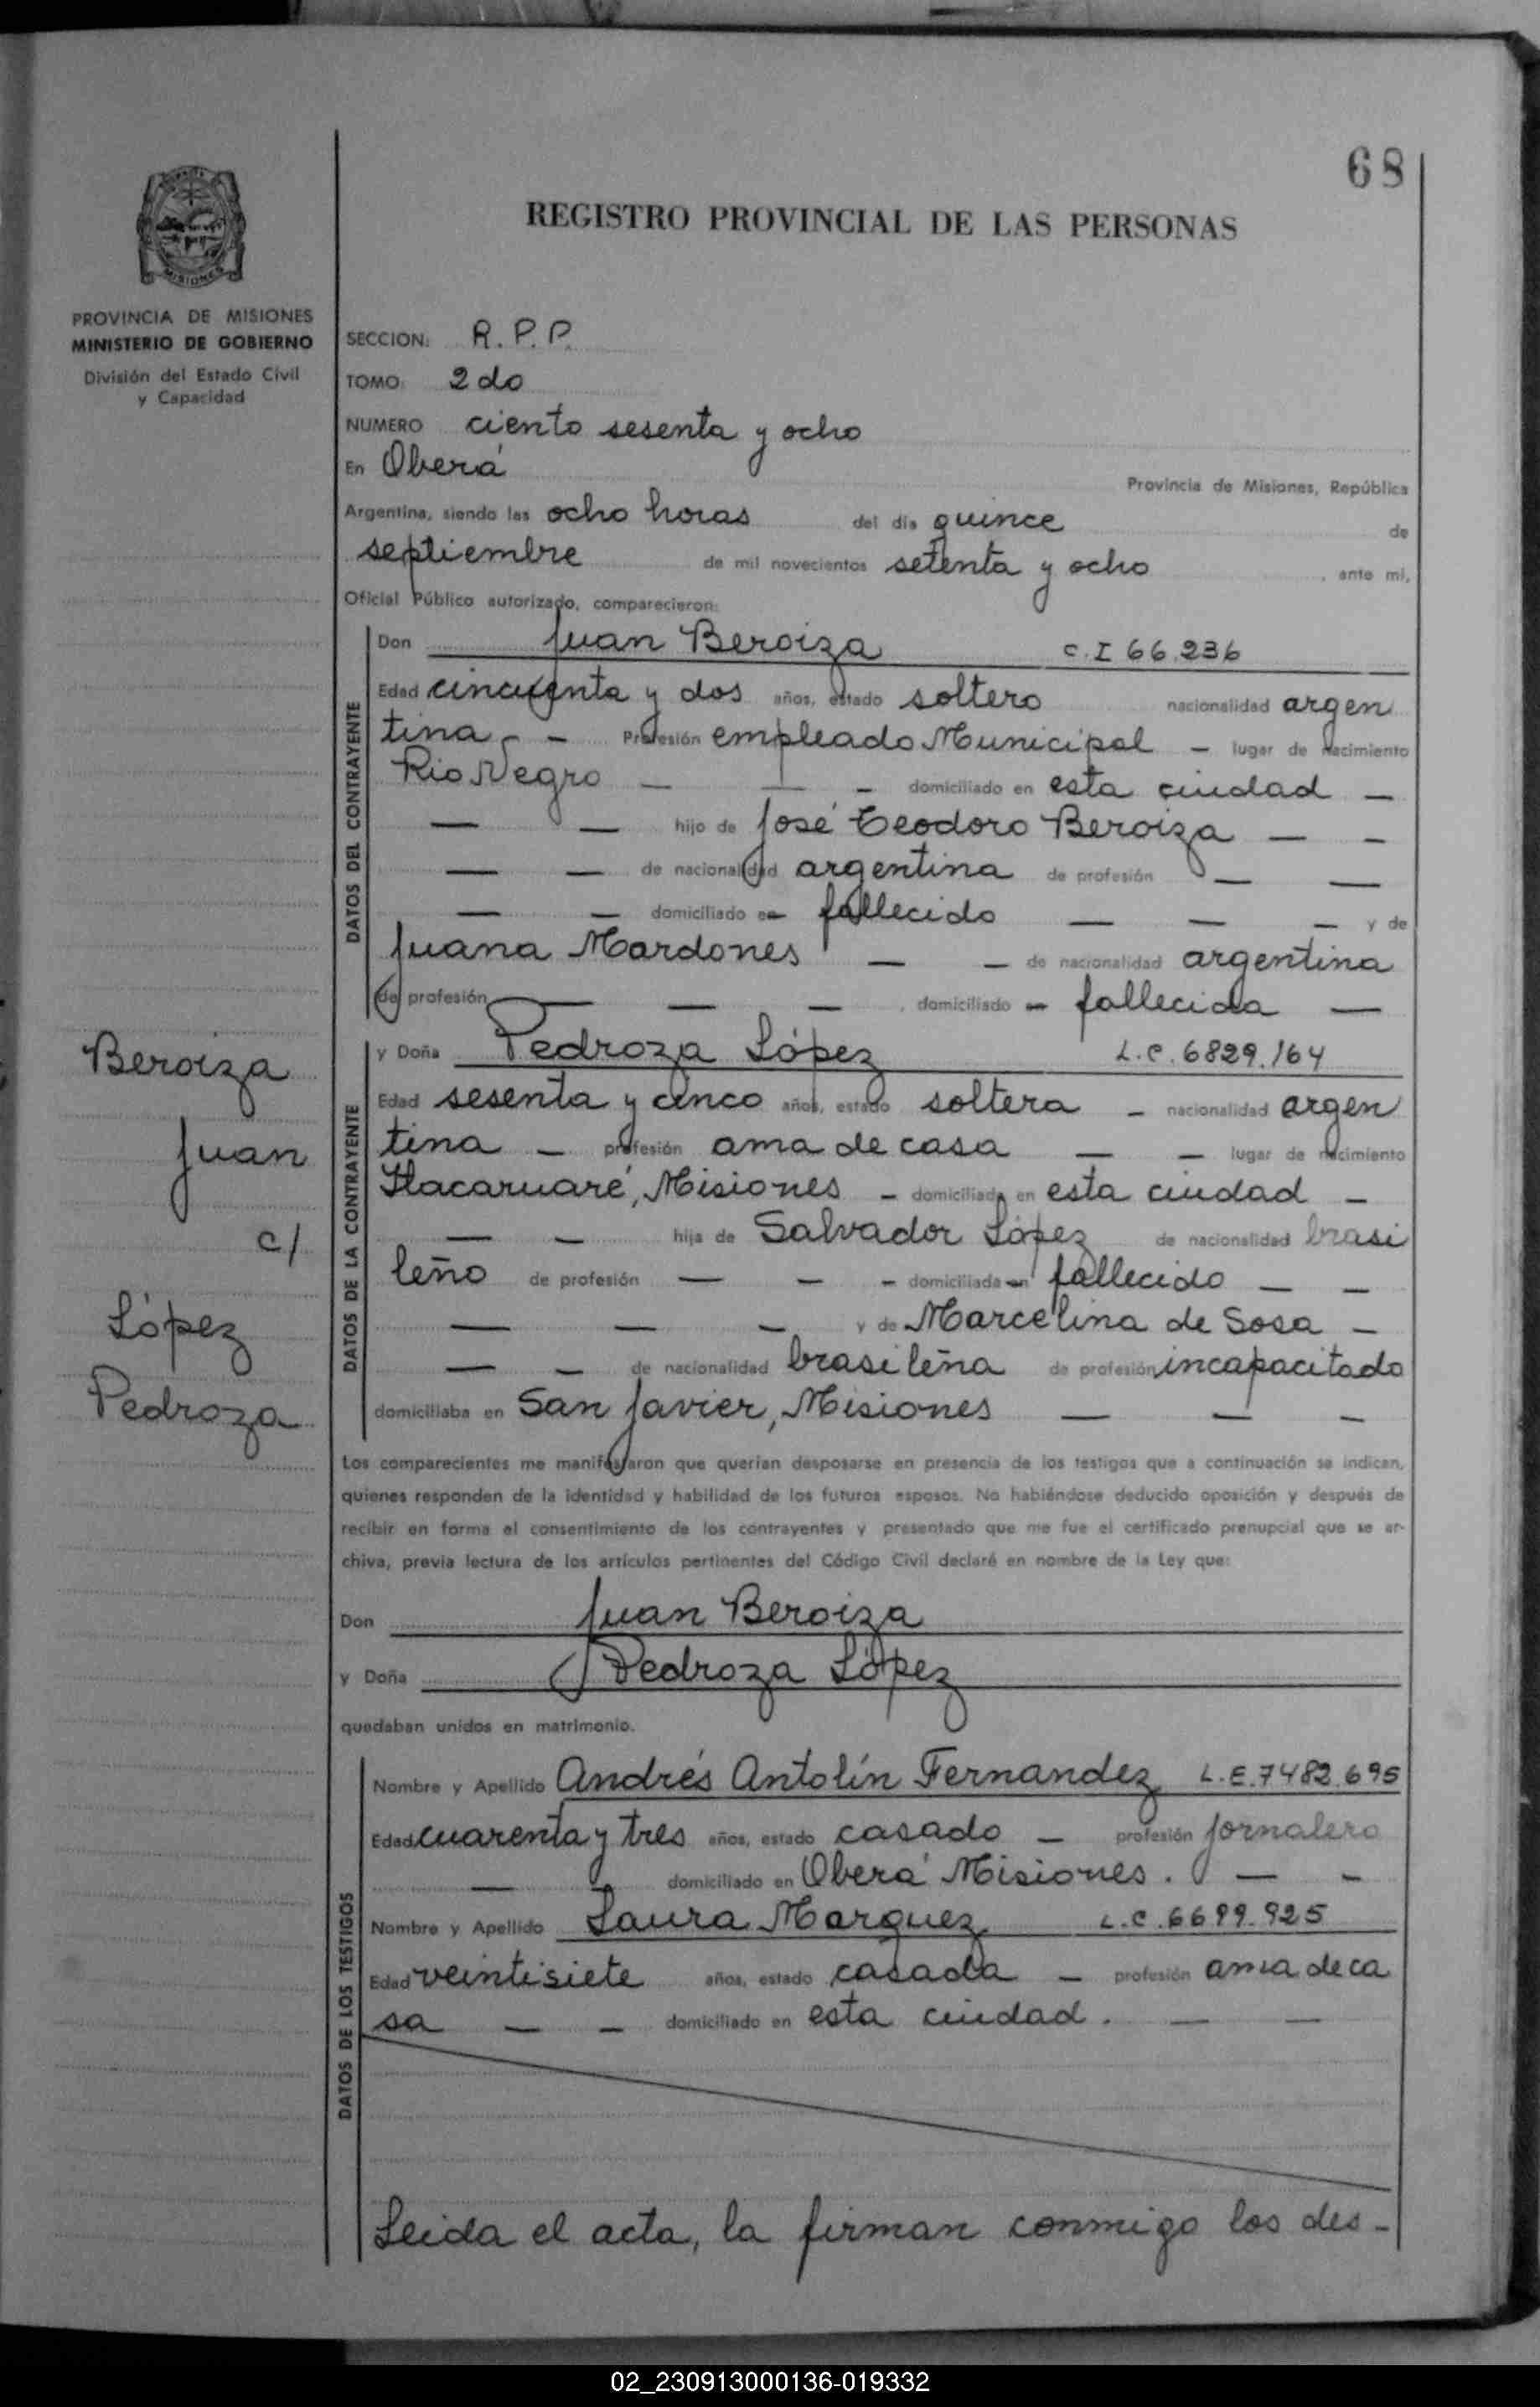 68
REGISTRO PROVINCIAL DE LAS PERSONAS
MISIONES
PROVINCIA DE MISIONES
MINISTERIO DE GOBIERNO
División del Estado Civil
y Capacidad
SECCION: R. P. P.
TOMO: 2do
NUMERO ciento sesenta y ocho
En Oberá
Provincia de Misiones, República
Argentina, siendo las ocho horas del día quince de
septiembre de mil novecientos setenta y ocho, ante mí,
Oficial Público autorizado, comparecieron:
DATOS DEL CONTRAYENTE
Don Juan Beroiza C.I 66.236
Edad cincuenta y dos años, estado soltero nacionalidad argen
tina - - Profesión empleado Municipal - lugar de nacimiento
Rio Negro — — - domiciliado en esta ciudad —
— — hijo de José Teodoro Beroiza — -
— — de nacionalidad argentina de profesión — —
— — domiciliado en fallecido — — — y de
Juana Mardones — — de nacionalidad argentina
de profesión — — — , domiciliado - fallecida —
Beroiza
Juan
c/
López
Pedroza
DATOS DE LA CONTRAYENTE
y Doña Pedroza López L.C. 6829.164
Edad sesenta y cinco años, estado soltera - nacionalidad argen
tina - profesión ama de casa — — lugar de nacimiento
Itacaruaré, Misiones - domiciliada en esta ciudad -
— — hija de Salvador López de nacionalidad brasi
leño de profesión — - - domiciliada en fallecido — -
— — — y de Marcelina de Sosa -
— — de nacionalidad brasileña de profesión incapacitado
domiciliaba en San Javier, Misiones — — -
Los comparecientes me manifestaron que querían desposarse en presencia de los testigos que a continuación se indican,
quienes responden de la identidad y habilidad de los futuros esposos. No habiéndose deducido oposición y después de
recibir en forma el consentimiento de los contrayentes y presentado que me fue el certificado prenupcial que se ar-
chiva, previa lectura de los artículos pertinentes del Código Civil declaré en nombre de la Ley que:
Don Juan Beroiza
y Doña Pedroza López
quedaban unidos en matrimonio.
DATOS DE LOS TESTIGOS
Nombre y Apellido Andrés Antolín Fernandez L.E. 7482.695
Edad cuarenta y tres años, estado casado — profesión jornalero
— domiciliado en Oberá Misiones. — -
Nombre y Apellido Laura Marquez L.C. 6699.925
Edad veintisiete años, estado casada - profesión ama de ca
sa — — domiciliado en esta ciudad. — —
Leida el acta, la firman conmigo los des-
02_230913000136-019332